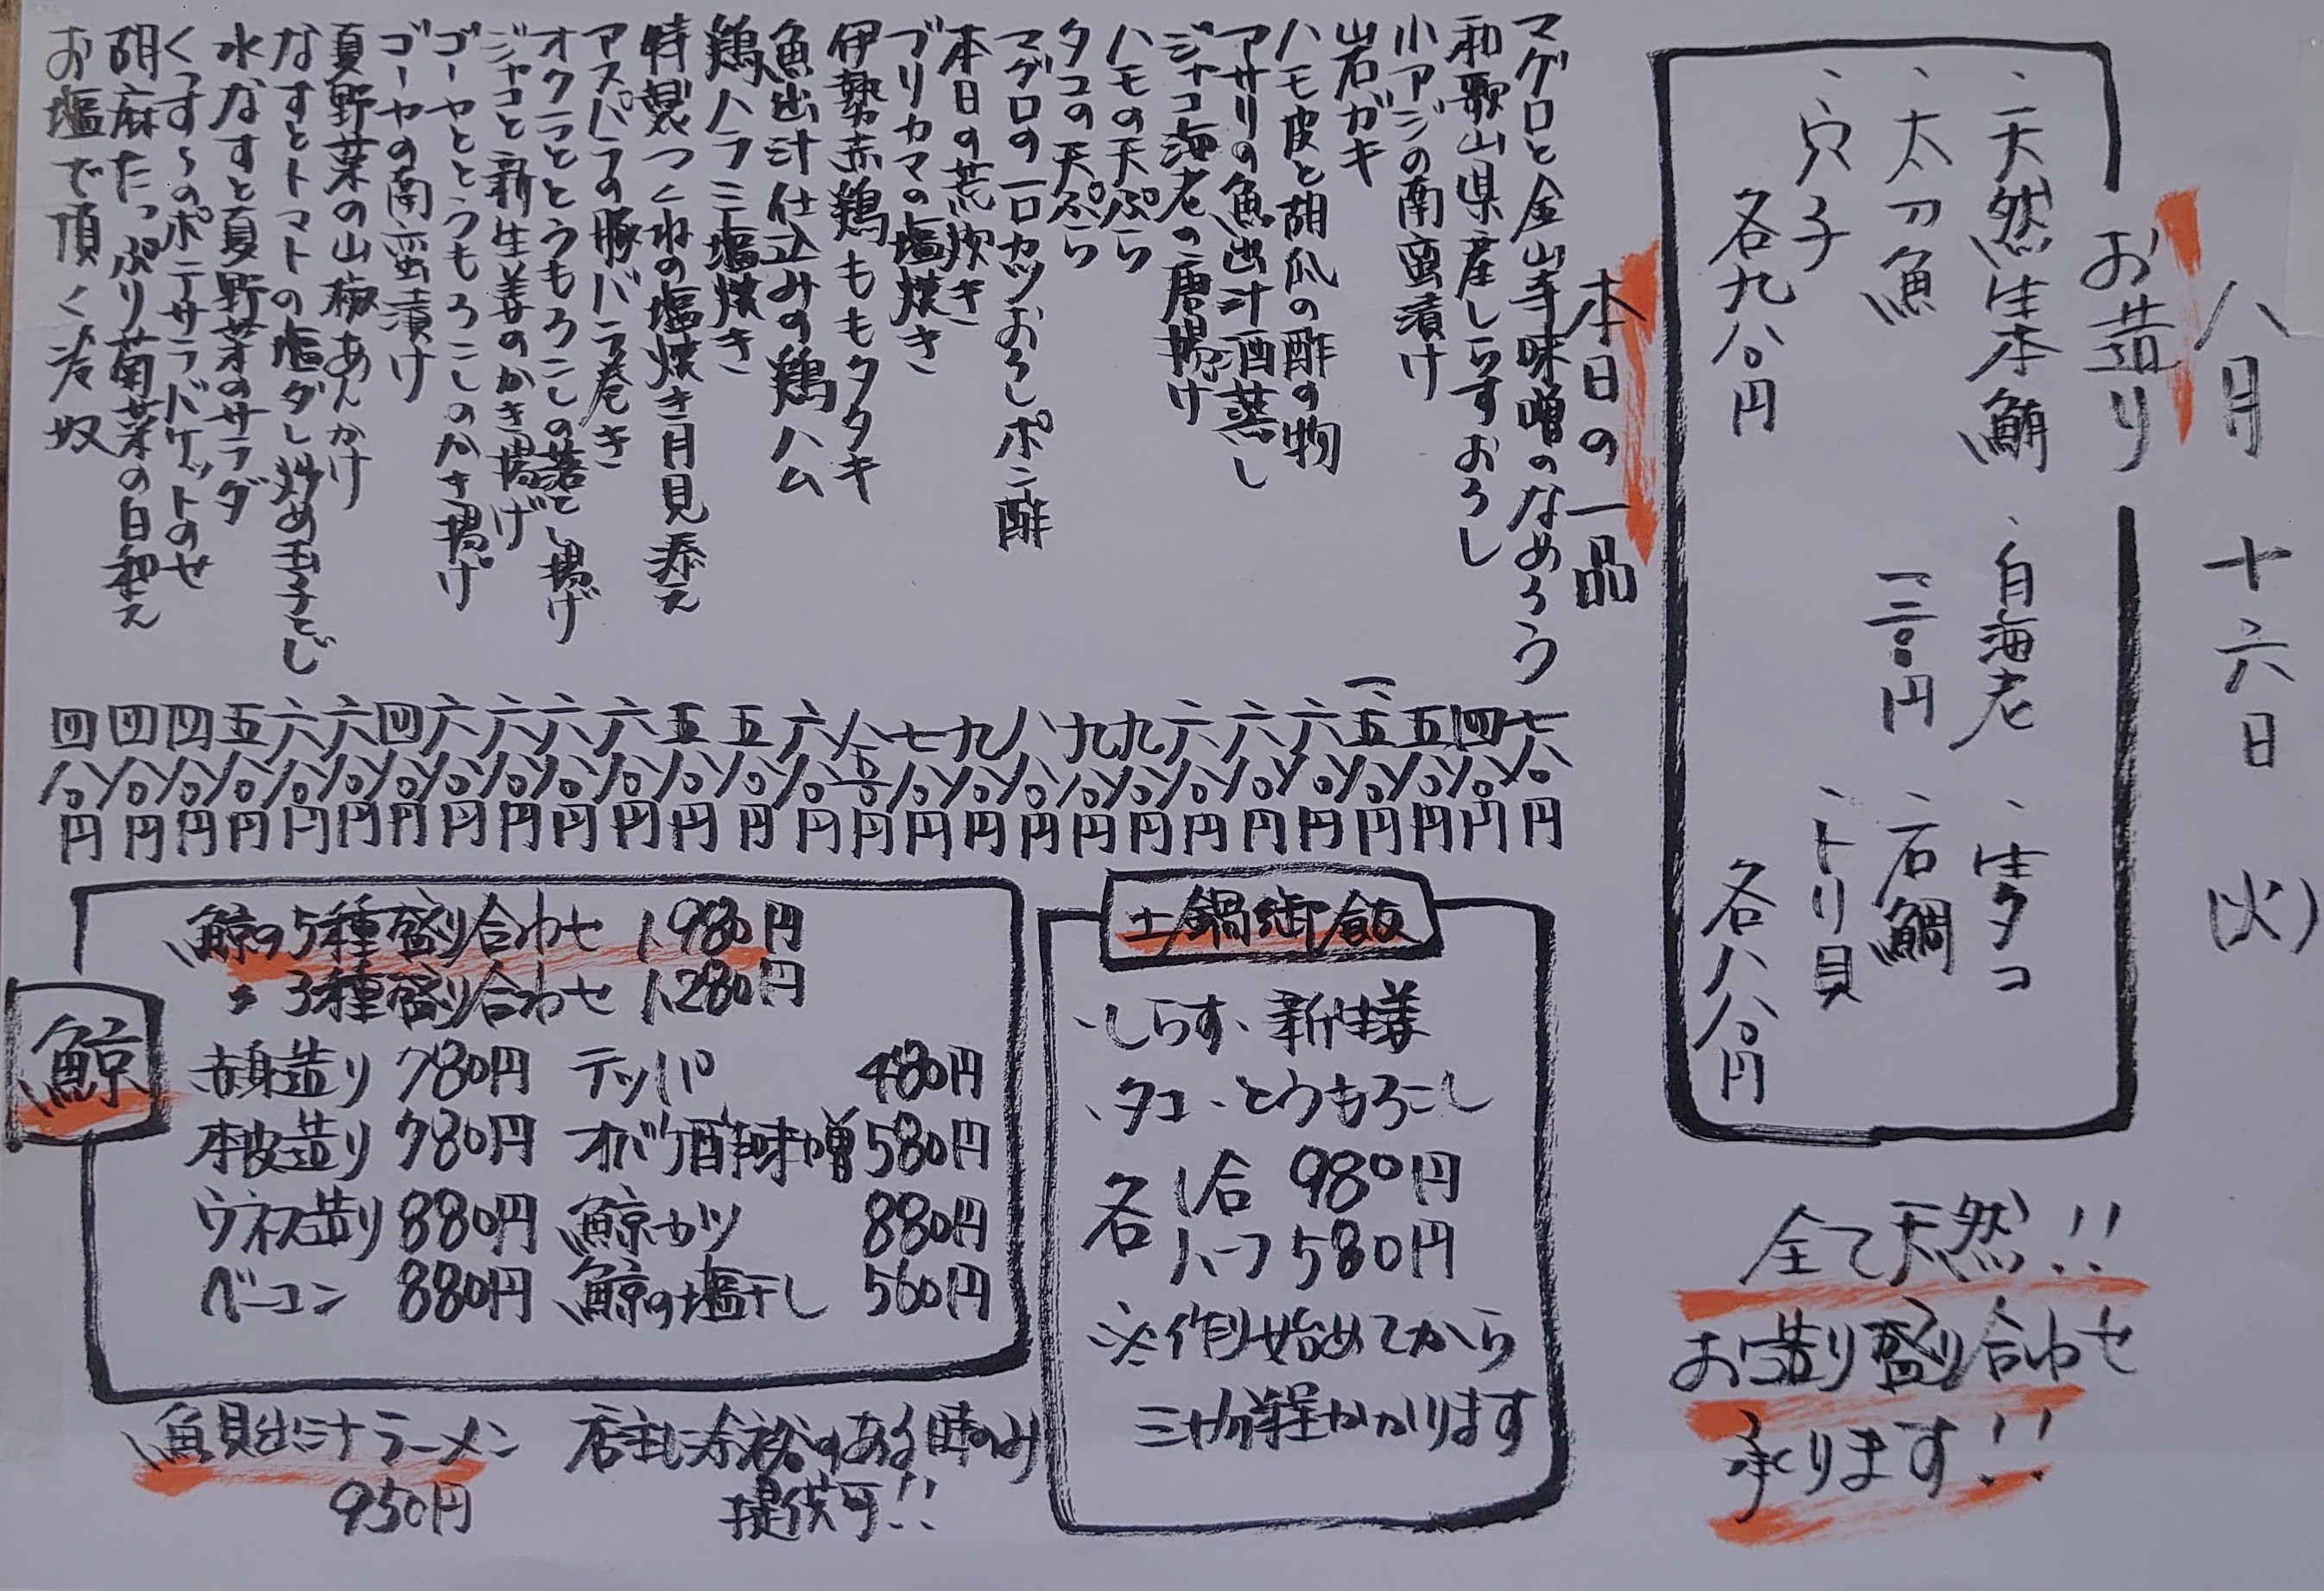 八月十六日(火)
お造り
、天然生本鮪
、太刀魚
、穴子
各九八〇円
、白海老
一二八〇円
、生タコ
、石鯛
、トリ貝
各八八〇円
全て天然!!
お造り盛り合わせ
承ります!!
本日の一品
マグロと金山寺味噌のなめろう 七八〇円
和歌山県産しらすおろし 四八〇円
小アジの南蛮漬け 五八〇円
岩ガキ 一、五八〇円
ハモ皮と胡瓜の酢の物 六八〇円
アサリの魚出汁酒蒸し 六八〇円
ジャコ海老の唐揚げ 六八〇円
ハモの天ぷら 九八〇円
タコの天ぷら 九八〇円
マグロの一口カツおろしポン酢 八八〇円
本日の荒炊き 九八〇円
ブリカマの塩焼き 七八〇円
伊勢赤鶏ももタタキ 八八〇円
魚出汁仕込みの鶏ハム 六八〇円
鶏ハラミ塩焼き 五八〇円
特製つくねの塩焼き月見添え 五八〇円
アスパラの豚バラ巻き 六八〇円
オクラととうもろこしの落とし揚げ 六八〇円
ジャコと新生姜のかき揚げ 六八〇円
ゴーヤととうもろこしのかき揚げ 六八〇円
ゴーヤの南蛮漬け 四八〇円
夏野菜の山椒あんかけ 六八〇円
なすとトマトの塩ダレ炒め玉子とじ 六八〇円
水なすと夏野菜のサラダ 五八〇円
くっす〜のポテサラバケットのせ 四八〇円
胡麻たっぷり菊菜の白和え 四八〇円
お塩で頂く冷奴 四八〇円
土鍋御飯
、しらす、新生姜
、タコ、とうもろこし
各 1合 980円
ハーフ 580円
※作り始めてから
三十分程かかります
鯨
鯨の5種盛り合わせ 1,980円
〃 3種盛り合わせ 1,280円
赤身造り 780円 テッパ 480円
本皮造り 780円 オバケ酢味噌 580円
ウネス造り 880円 鯨カツ 880円
ベーコン 880円 鯨の塩干し 560円
魚貝出汁ラーメン
950円
店主に余裕のある時のみ
提供可!!